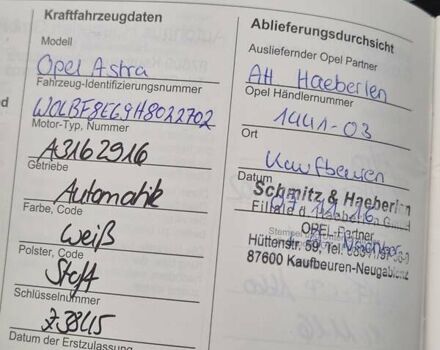 Kraftfahrzeugdaten
Modell
Opel Astra
Fahrzeug-Identifizierungsnummer
W0LBF8EC9H8022702
Motor-Typ, Nummer
A3162916
Getriebe
Automatik
Farbe, Code
weiß
Polster, Code
Stoff
Schlüsselnummer
Z3845
Datum der Erstzulassung
Ablieferungsdurchsicht
Ausliefernder Opel Partner
AH Haeberlen
Opel Händlernummer
1441-03
Ort
Kaufbeuren
Datum
Schmitz & Haeberlen
OPEL-Partner
Hüttenstr. 59, Tel.
87600 Kaufbeuren-Neugablonz